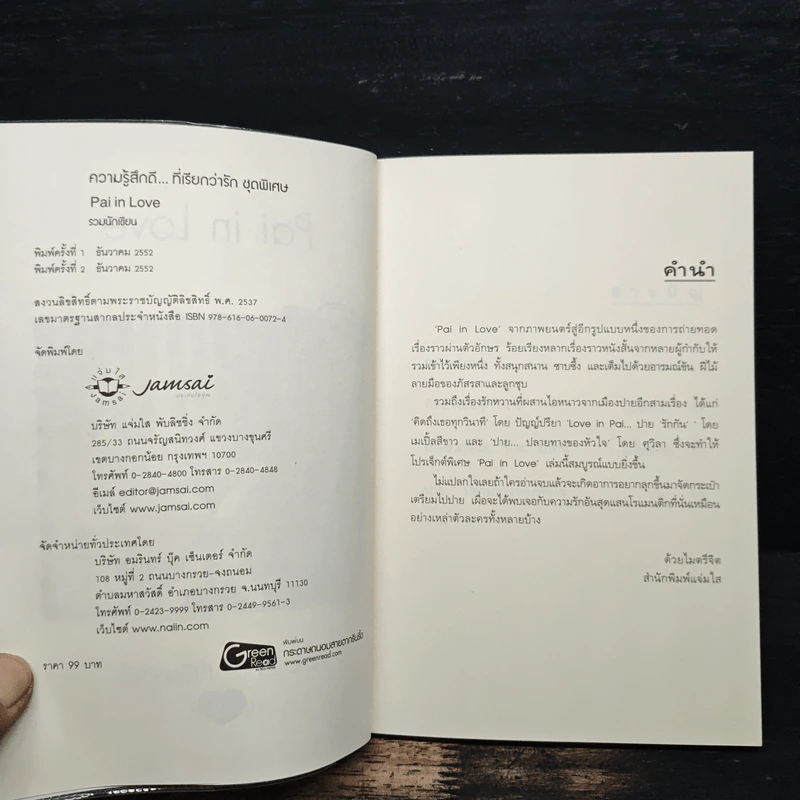 ความรู้สึกดี... ที่เรียกว่ารัก ชุดพิเศษ
Pai in Love
รวมนักเขียน
พิมพ์ครั้งที่ 1 ธันวาคม 2552
พิมพ์ครั้งที่ 2 ธันวาคม 2552
สงวนลิขสิทธิ์ตามพระราชบัญญัติลิขสิทธิ์ พ.ศ. 2537
เลขมาตรฐานสากลประจำหนังสือ ISBN 978-616-06-0072-4
จัดพิมพ์โดย
แจ่มใส
Jamsai
Jamsai
บริษัท แจ่มใส พับลิชชิ่ง จำกัด
285/33 ถนนจรัญสนิทวงศ์ แขวงบางขุนศรี
เขตบางกอกน้อย กรุงเทพฯ 10700
โทรศัพท์ 0-2840-4800 โทรสาร 0-2840-4848
อีเมล์ editor@jamsai.com
เว็บไซต์ www.jamsai.com
จัดจำหน่ายทั่วประเทศโดย
บริษัท อมรินทร์ บุ๊ค เซ็นเตอร์ จำกัด
108 หมู่ที่ 2 ถนนบางกรวย-จงถนอม
ตำบลมหาสวัสดิ์ อำเภอบางกรวย จ.นนทบุรี 11130
โทรศัพท์ 0-2423-9999 โทรสาร 0-2449-9561-3
เว็บไซต์ www.naiin.com
ราคา 99 บาท
Green Read
พิมพ์บน
กระดาษถนอมสายตากรีนรี้ด
www.greenread.com
คำนำ
'Pai in Love' จากภาพยนตร์สู่อีกรูปแบบหนึ่งของการถ่ายทอด
เรื่องราวผ่านตัวอักษร ร้อยเรียงหลากเรื่องราวหนังสั้นจากหลายผู้กำกับให้
รวมเข้าไว้เพียงหนึ่ง ทั้งสนุกสนาน ซาบซึ้ง และเต็มไปด้วยอารมณ์ขัน ฝีไม้
ลายมือของภัสรสาและลูกชุบ
รวมถึงเรื่องรักหวานที่ผสานไอหนาวจากเมืองปายอีกสามเรื่อง ได้แก่
'คิดถึงเธอทุกวินาที' โดย ปัญญ์ปรียา 'Love in Pai... ปาย รักกัน' โดย
เมเปิ้ลสีขาว และ 'ปาย... ปลายทางของหัวใจ' โดย ศุวิลา ซึ่งจะทำให้
โปรเจ็กต์พิเศษ 'Pai in Love' เล่มนี้สมบูรณ์แบบยิ่งขึ้น
ไม่แปลกใจเลยถ้าใครอ่านจบแล้วจะเกิดอาการอยากลุกขึ้นมาจัดกระเป๋า
เตรียมไปปาย เผื่อจะได้พบเจอกับความรักอันสุดแสนโรแมนติกที่นั่นเหมือน
อย่างเหล่าตัวละครทั้งหลายบ้าง
ด้วยไมตรีจิต
สำนักพิมพ์แจ่มใส